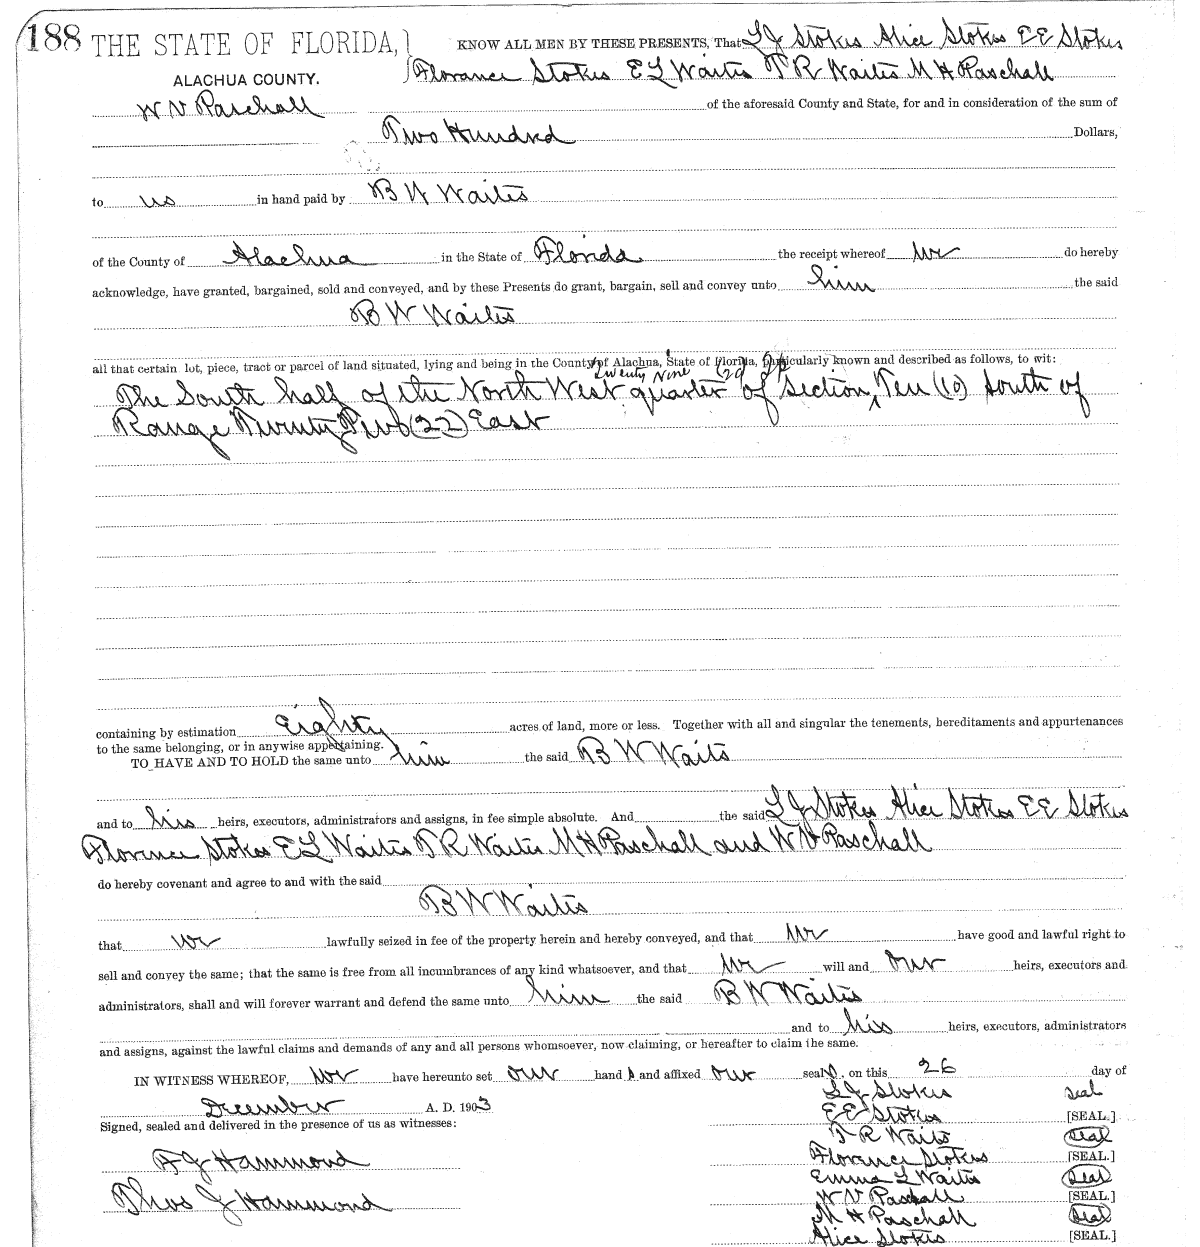 188 THE STATE OF FLORIDA, KNOW ALL MEN BY THESE PRESENTS, That L J Stokes Alice Stokes E E Stokes
ALACHUA COUNTY. Florance Stokes E L Waites T R Waites M H Paschall
W N Paschall of the aforesaid County and State, for and in consideration of the sum of
Two Hundred Dollars,
to us in hand paid by B W Waites
of the County of Alachua in the State of Florida the receipt whereof we do hereby
acknowledge, have granted, bargained, sold and conveyed, and by these Presents do grant, bargain, sell and convey unto him the said
B W Waites
all that certain lot, piece, tract or parcel of land situated, lying and being in the County of Alachua, State of Florida, particularly known and described as follows, to wit:
Twenty Nine (29)
The South half of the North West quarter of Section, Ten (10) South of
Range Twenty Two (22) East
containing by estimation eighty acres of land, more or less. Together with all and singular the tenements, hereditaments and appurtenances
to the same belonging, or in anywise appertaining.
TO HAVE AND TO HOLD the same unto him the said B W Waits
and to his heirs, executors, administrators and assigns, in fee simple absolute. And the said L J Stokes Alice Stokes E E Stokes
Florence Stokes E L Waites T R Waites M H Paschall and W N Paschall
do hereby covenant and agree to and with the said
B W Waites
that we lawfully seized in fee of the property herein and hereby conveyed, and that we have good and lawful right to
sell and convey the same; that the same is free from all incumbrances of any kind whatsoever, and that we will and our heirs, executors and
administrators, shall and will forever warrant and defend the same unto him the said B W Waites
and to his heirs, executors, administrators
and assigns, against the lawful claims and demands of any and all persons whomsoever, now claiming, or hereafter to claim the same.
IN WITNESS WHEREOF, we have hereunto set our hand s and affixed our seals, on this 26 day of
December A. D. 1903 L J Stokes seal
Signed, sealed and delivered in the presence of us as witnesses: E E Stokes [SEAL.]
T R Waits seal
A J Hammond Florance Stokes [SEAL.]
Emma L Waites seal
Thos J Hammond W N Paschall [SEAL.]
M H Paschall seal
Alice Stokes [SEAL.]